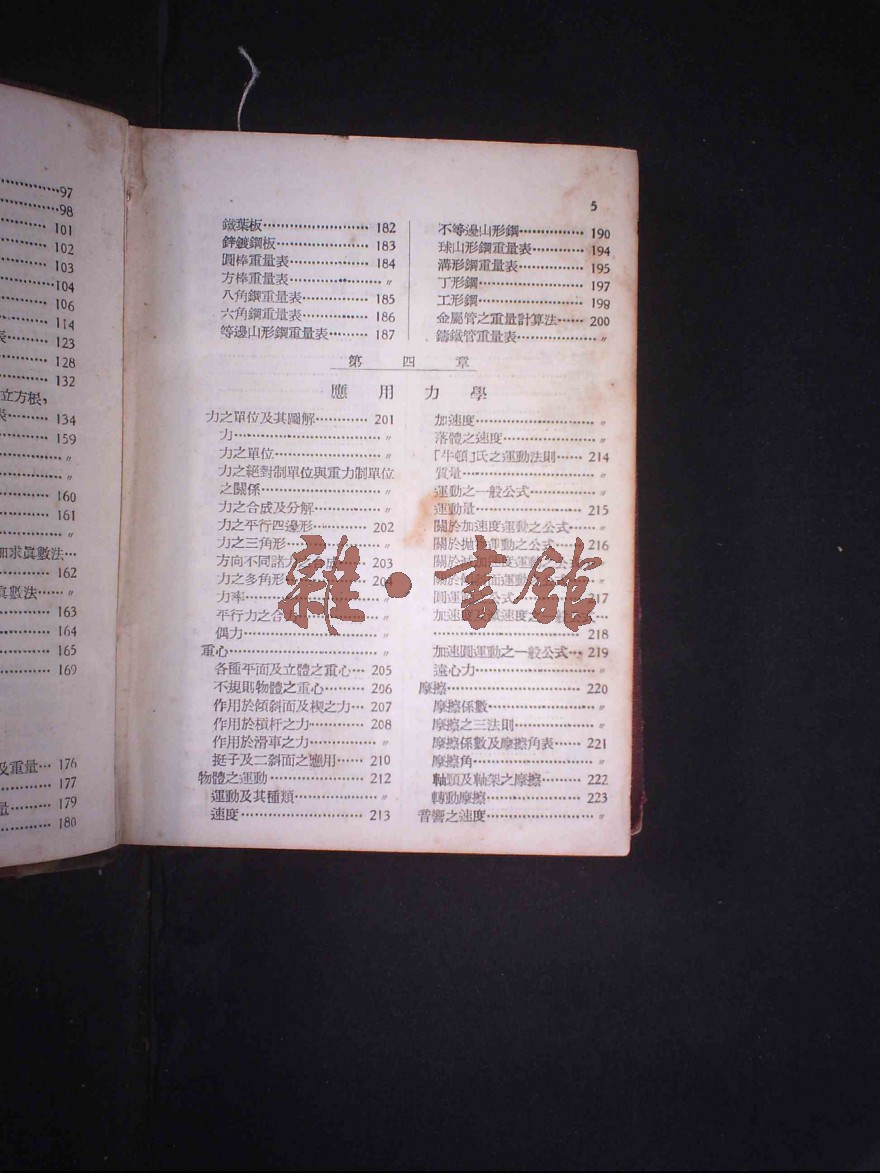 97
98
101
102
103
104
106
114
表 123
128
132
立方根，
表 134
159
〃
〃
160
161
〃
求眞數法
162
眞數法
163
164
165
169
及重量 176
177
量 179
180
5
鐵葉板 182
鋅鍍鋼板 183
圓棒重量表 184
方棒重量表 〃
八角鋼重量表 185
六角鋼重量表 186
等邊山形鋼重量表 187
不等邊山形鋼 190
球山形鋼重量表 194
溝形鋼重量表 195
丁形鋼 197
工形鋼 199
金屬管之重量計算法 200
鑄鐵管重量表 〃
第四章
應用力學
力之單位及其圖解 201
力 〃
力之單位 〃
力之絕對制單位與重力制單位
之關係 〃
力之合成及分解 〃
力之平行四邊形 202
力之三角形 〃
方向不同諸力之合成 203
力之多角形 204
力率 〃
平行力之合力 〃
偶力 〃
重心 〃
各種平面及立體之重心 205
不規則物體之重心 206
作用於傾斜面及楔之力 207
作用於槓杆之力 208
作用於滑車之力 〃
挺子及二斜面之應用 210
物體之運動 212
運動及其種類 〃
速度 213
加速度 〃
落體之速度 〃
「牛頓」氏之運動法則 214
質量 〃
運動之一般公式 〃
運動量 215
關於加速度運動之公式 〃
關於拋 運動之公式 216
關於 速度運動之公式 〃
關於 面運動之公式 〃
圓運動 公式 217
加速度及 速度之 般公式
218
加速圓運動之一般公式 219
遠心力 〃
摩擦 220
摩擦係數 〃
摩擦之三法則 〃
摩擦係數及摩擦角表 221
摩擦角 〃
軸頸及軸架之摩擦 222
轉動摩擦 223
音響之速度 〃
雜·書館